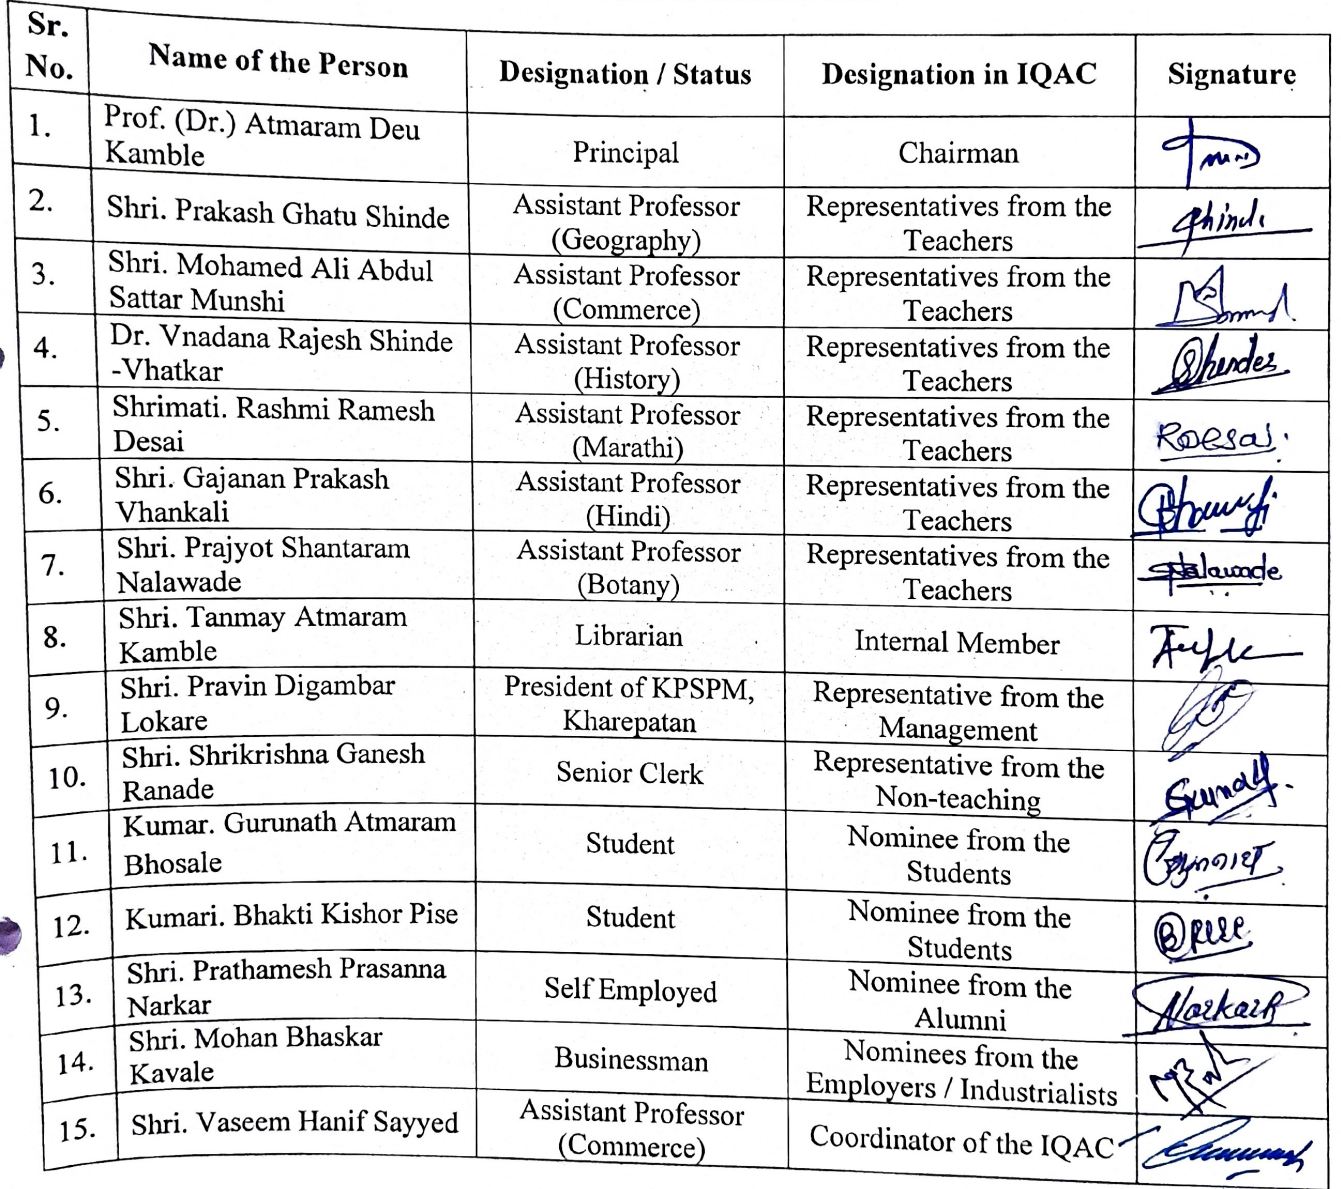 Sr. No. Name of the Person Designation / Status Designation in IQAC Signature
1. Prof. (Dr.) Atmaram Deu
Kamble Principal Chairman
2. Shri. Prakash Ghatu Shinde Assistant Professor
(Geography) Representatives from the
Teachers
3. Shri. Mohamed Ali Abdul
Sattar Munshi Assistant Professor
(Commerce) Representatives from the
Teachers
4. Dr. Vnadana Rajesh Shinde
-Vhatkar Assistant Professor
(History) Representatives from the
Teachers
Shindes
5. Shrimati. Rashmi Ramesh
Desai Assistant Professor
(Marathi) Representatives from the
Teachers
RDesai.
6. Shri. Gajanan Prakash
Vhankali Assistant Professor
(Hindi) Representatives from the
Teachers
7. Shri. Prajyot Shantaram
Nalawade Assistant Professor
(Botany) Representatives from the
Teachers
Nalawade
8. Shri. Tanmay Atmaram
Kamble Librarian Internal Member
9. Shri. Pravin Digambar
Lokare President of KPSPM,
Kharepatan Representative from the
Management
10. Shri. Shrikrishna Ganesh
Ranade Senior Clerk Representative from the
Non-teaching
11. Kumar. Gurunath Atmaram
Bhosale Student Nominee from the
Students
12. Kumari. Bhakti Kishor Pise Student Nominee from the
Students
13. Shri. Prathamesh Prasanna
Narkar Self Employed Nominee from the
Alumni
NarkarP
14. Shri. Mohan Bhaskar
Kavale Businessman Nominees from the
Employers / Industrialists
15. Shri. Vaseem Hanif Sayyed Assistant Professor
(Commerce) Coordinator of the IQAC